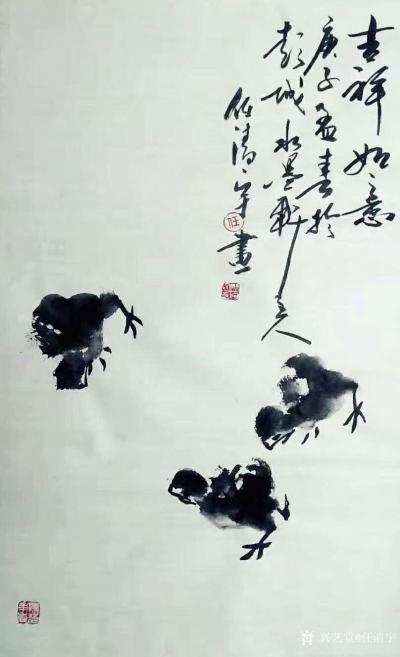 吉祥如意
庚子孟春於
彭城水墨軒主人
任清宇畫
任
兴艺堂@任清宇